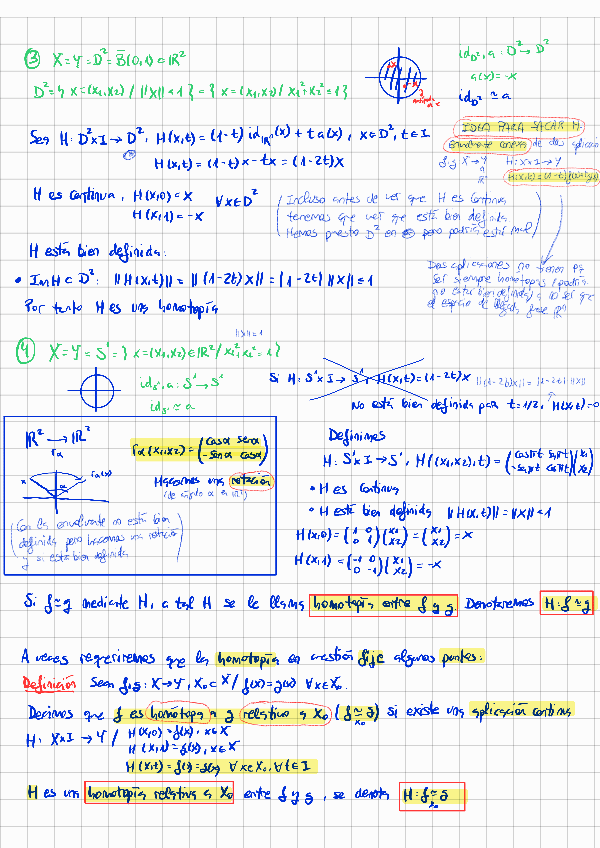 ③ X=Y=D²=B̄(0,1)⊂ℝ²
D²={x=(x₁,x₂)/ ||x||≤1}={x=(x₁,x₂)/ x₁²+x₂²≤1}
id_D², a: D²→D²
a(x)=-x
id_D² ≃ a
Sea H: D²×I→D², H(x,t)=(1-t) id_ℝ²(x)+t a(x), x∈D², t∈I
H(x,t)=(1-t)x-tx=(1-2t)x
IDEA PARA SACAR H:
Envolvente convexa de dos aplicaciones
f,g: X→Y H: X×I→Y
H(x,t)=(1-t)f(x)+tg(x)
H es continua, H(x,0)=x ∀x∈D²
H(x,1)=-x
(Incluso antes de ver que H es continua
tenemos que ver que está bien definida
Hemos puesto D² en pero podría estar mal)
H está bien definida:
• ImH⊂D²: ||H(x,t)||=||(1-2t)x||=|1-2t| ||x||≤1
Por tanto H es una homotopía
Dos aplicaciones no tienen pq
ser siempre homotopas (podría
no estar bien definida) a no ser que
el espacio de llegada fuese ℝⁿ
||x||=1
④ X=Y=S¹={x=(x₁,x₂)∈ℝ²/ x₁²+x₂²=1}
id_S¹, a: S¹→S¹
id_S¹ ≃ a
Si H: S¹×I→S¹, H(x,t)=(1-2t)x ||(1-2t)x||=|1-2t| ||x||
No está bien definida para t=1/2, H(x,t)=0
ℝ²→ℝ²
rα
rα(x₁,x₂)=(cosα senα
-senα cosα)
x α rα(x)
Hacemos una rotación
(de ángulo α en ℝ²)
(Con la envolvente no está bien
definida pero hacemos una rotación
y si está bien definida)
Definimos
H: S¹×I→S¹, H((x₁,x₂),t)=(cosπt senπt
-senπt cosπt)(x₁
x₂)
• H es continua
• H está bien definida ||H(x,t)||=||x||=1
H(x,0)=(1 0
0 1)(x₁
x₂)=(x₁
x₂)=x
H(x,1)=(-1 0
0 -1)(x₁
x₂)=-x
Si f≃g mediante H, a tal H se le llama homotopía entre f y g. Denotaremos H: f≃g
A veces requeriremos que la homotopía en cuestión fije algunos puntos:
Definición Sean f,g: X→Y, X₀⊂X / f(x)=g(x) ∀x∈X₀.
Decimos que f es homótopa a g relativo a X₀ (f≃g X₀) si existe una aplicación continua
H: X×I→Y / H(x,0)=f(x), x∈X
H(x,1)=g(x), x∈X
H(x,t)=f(x)=g(x) ∀x∈X₀, ∀t∈I
H es una homotopía relativa a X₀ entre f y g, se denota H: f≃g X₀